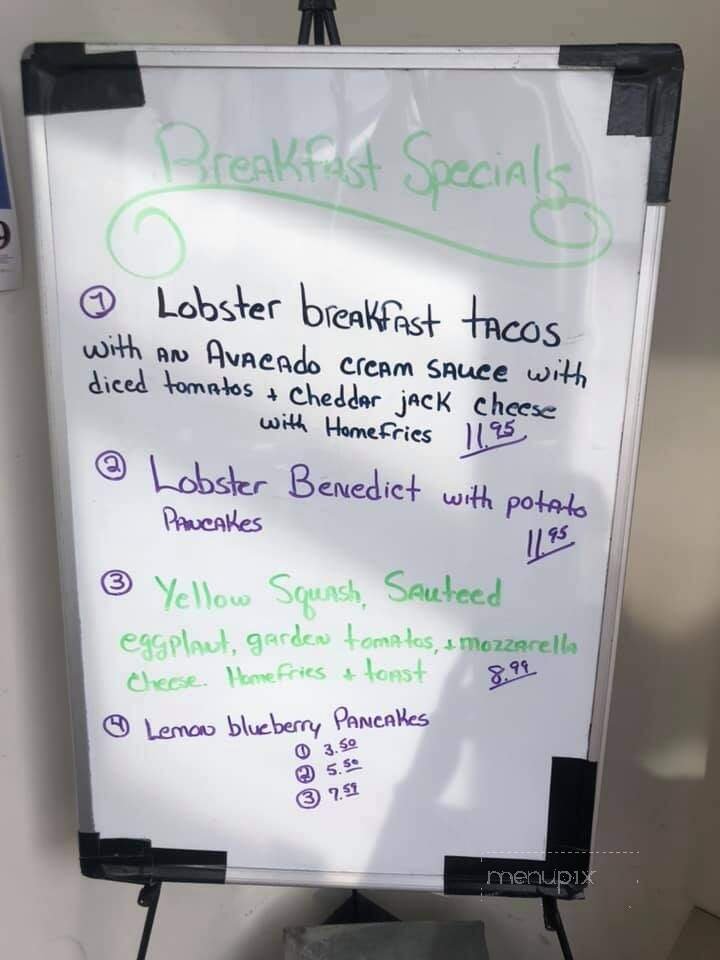 Breakfast Specials
① Lobster breakfast tacos
with an Avacado cream sauce with
diced tomatos + Cheddar jack cheese
with Homefries 11.95
② Lobster Benedict with potato
Pancakes
11.95
③ Yellow Squash, Sauteed
eggplant, garden tomatos, + mozzarella
cheese. Homefries + toast 8.99
④ Lemon blueberry Pancakes
① 3.50
② 5.50
③ 7.59
menupix
9